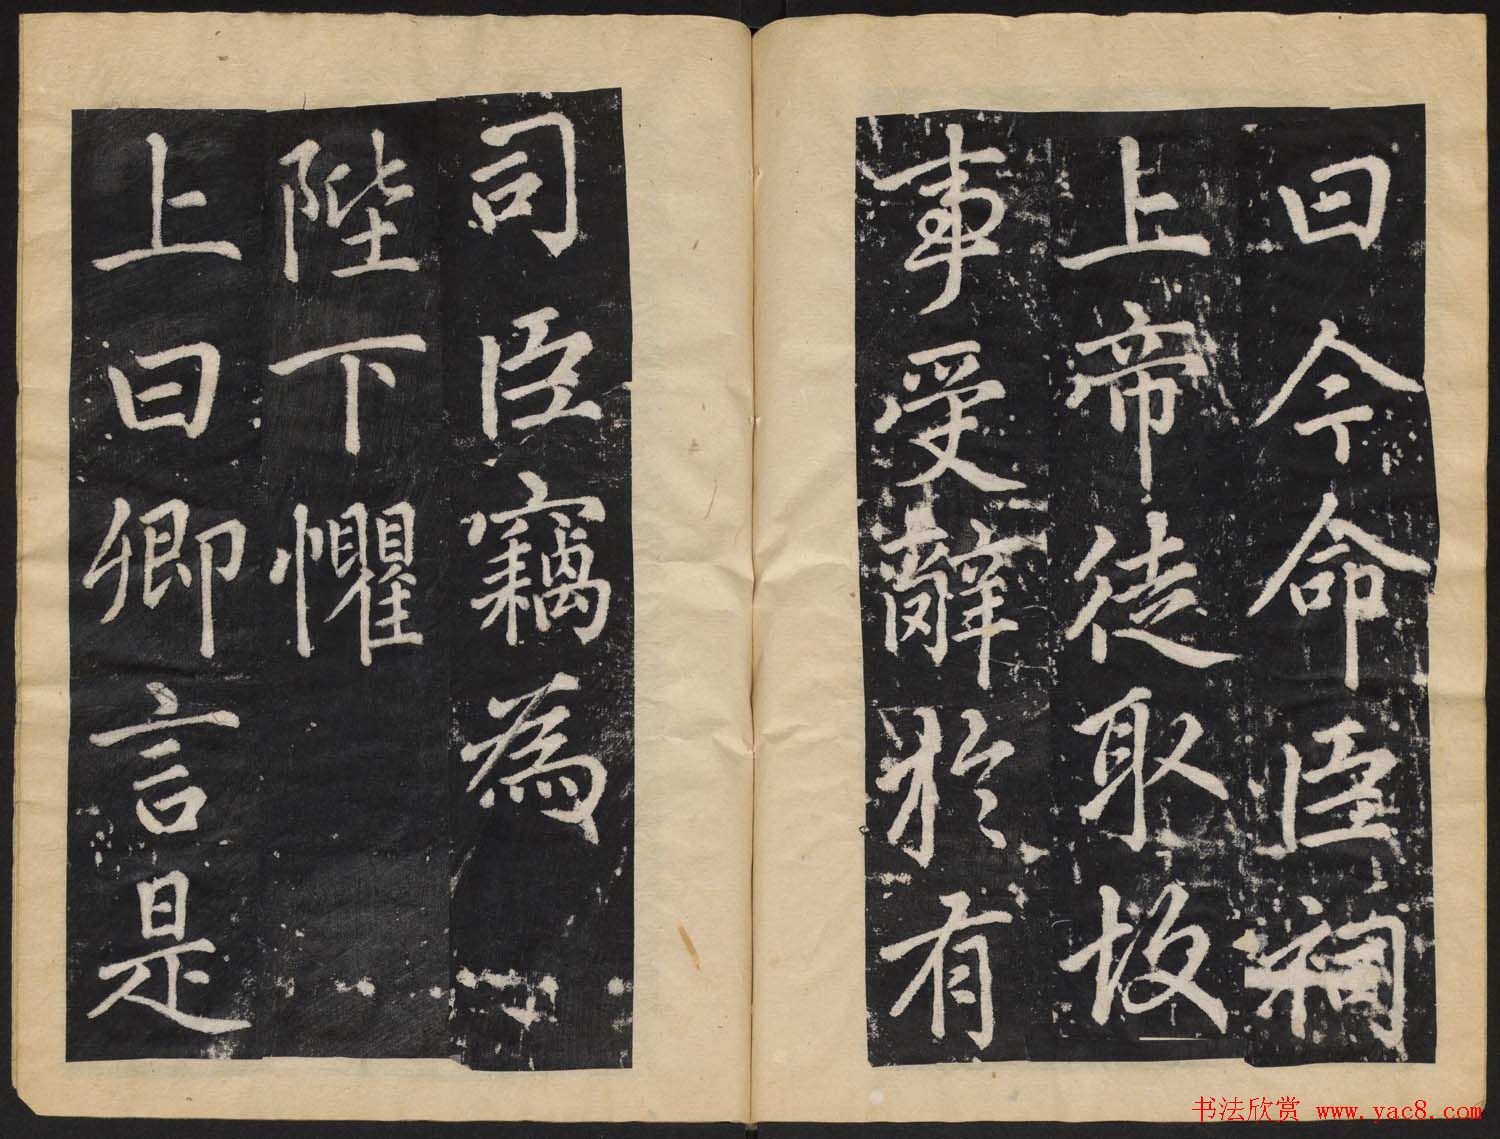 曰今命臣祠
上帝徒取故
事受辭於有
司臣竊為
陛下懼
上曰卿言是
书法欣赏 www.yac8.com